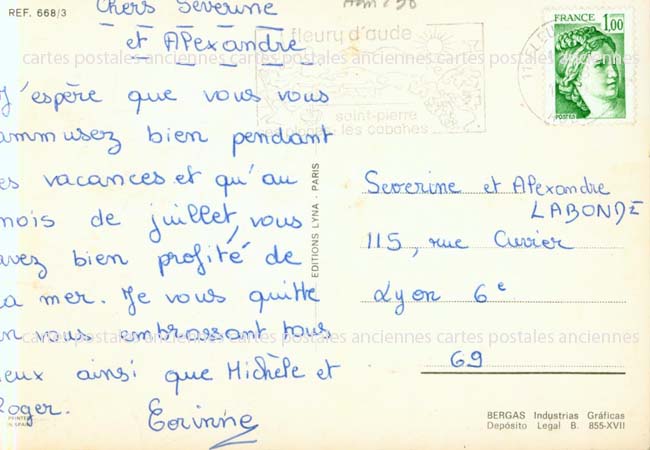 REF. 668/3
Chers Severine
et Alexandre
J'espère que vous vous
ammusez bien pendant
es vacances et qu'au
mois de juillet, vous
avez bien profité de
a mer. Je vous quitte
en vous embrassant tous
eux ainsi que Michèle et
Roger. Corinne
PRINTED
IN SPAIN
EDITIONS LYNA - PARIS
fleury d'aude
saint-pierre
les cabanes
FRANCE
1,00
POSTES
Severine et Alexandre
LABONDE
115, rue Cuvier
Lyon 6e
69
BERGAS Industrias Gráficas
Depósito Legal B. 855-XVII
cartes postales anciennes cartes postales anciennes cartes postales anciennes
cartes postales anciennes cartes postales anciennes cartes postales anciennes